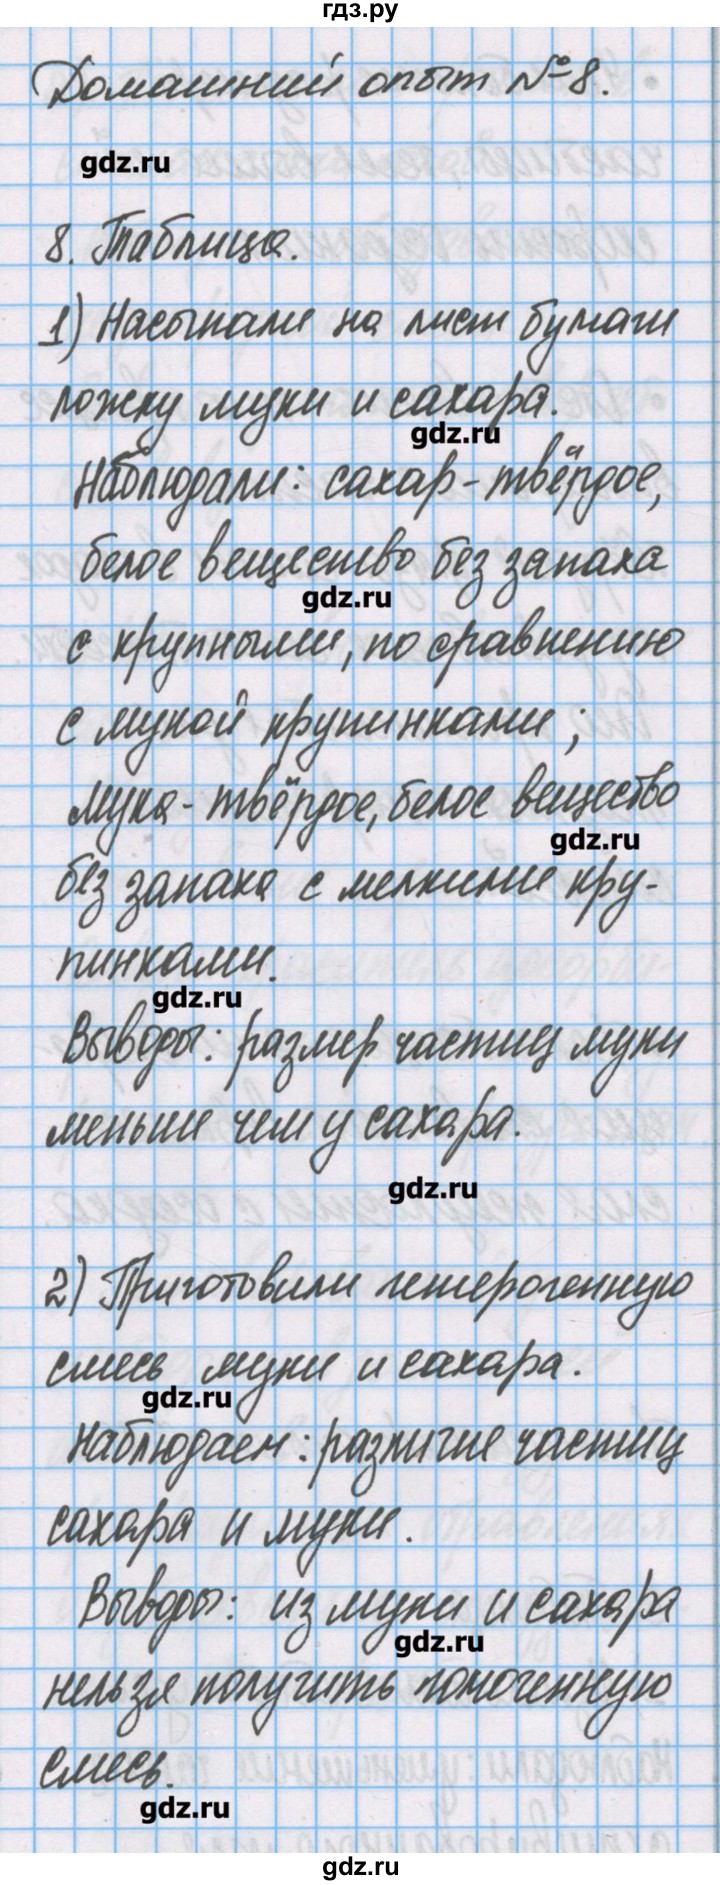 гдз.ру
Домашний опыт №8.
gdz.ru
8. Таблица.
1) Насыпали на лист бумаги
ложку муки и сахара.
gdz.ru
Наблюдали: сахар - твёрдое,
белое вещество без запаха
gdz.ru
с крупными, по сравнению
с мукой крупинками;
мука - твёрдое, белое вещество
gdz.ru
без запаха с мелкими кру-
пинками.
gdz.ru
Выводы: размер частиц муки
меньше чем у сахара.
gdz.ru
2) Приготовили гетерогенную
смесь муки и сахара.
gdz.ru
Наблюдаем: различие частиц
сахара и муки.
Выводы: из муки и сахара
gdz.ru
нельзя получить гомогенную
смесь.
gdz.ru
gdz.ru